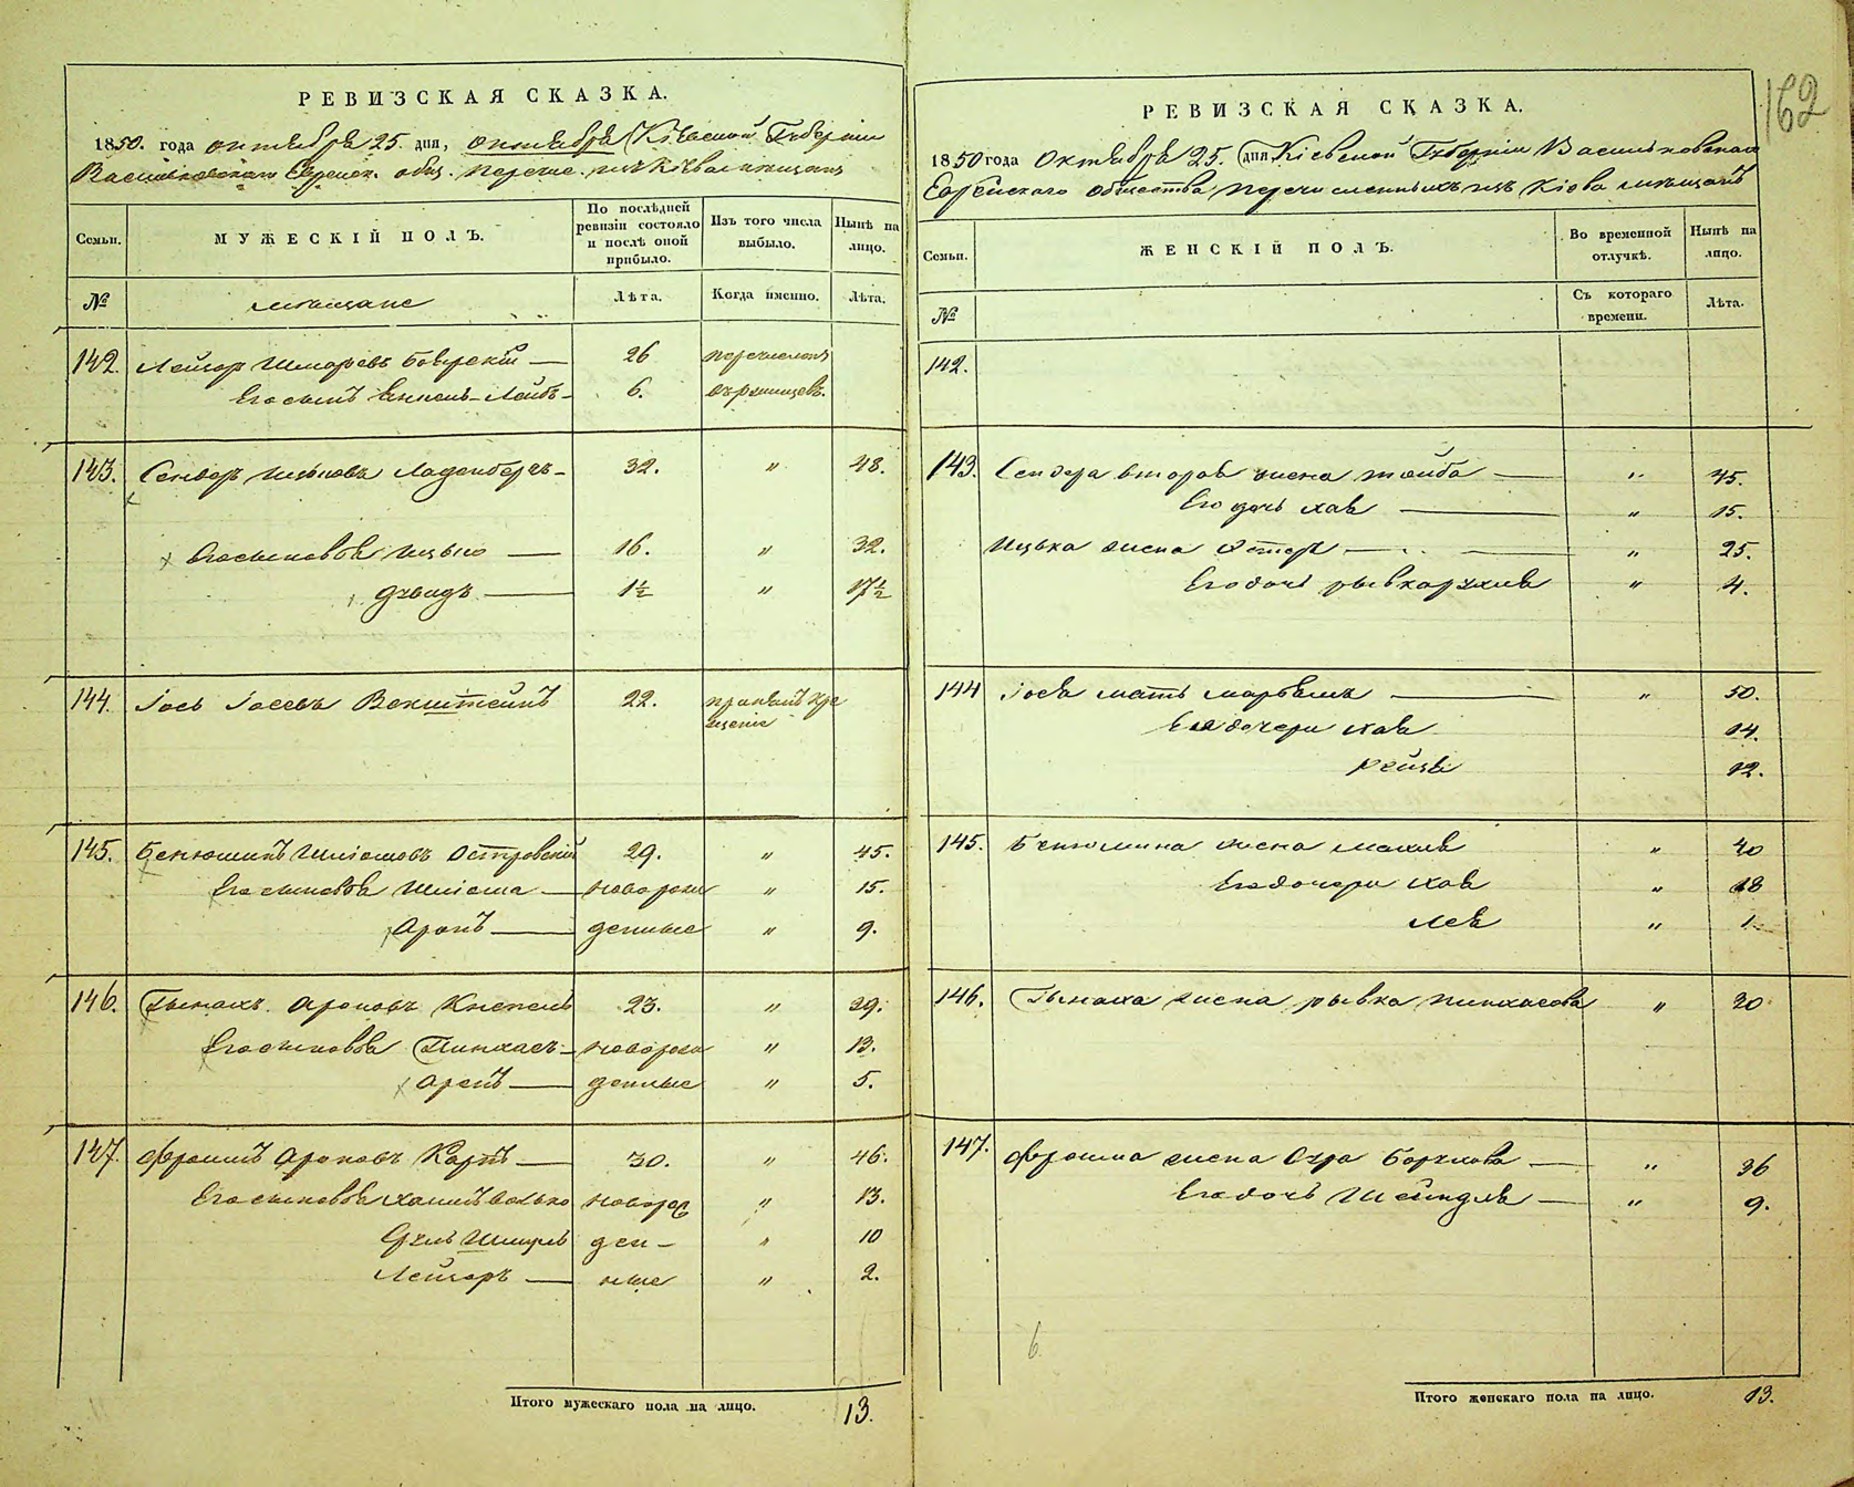 162
РЕВИЗСКАЯ СКАЗКА.
1850. года октября 25. дня, октября Кіевской Губерніи
Васильковскаго Еврейск. общ. перечис. изъ Кіева мѣщанъ
Семьи.
МУЖЕСКІЙ ПОЛЪ.
По послѣдней ревизіи состояло и послѣ оной прибыло.
Изъ того числа выбыло.
Нынѣ на лицо.
№
мѣщане
Лѣта.
Когда именно.
Лѣта.
142. Лейзор Шмаревъ Боярскій — 26 перечисленъ
Его сынъ Энзель-Лейбъ - 6.
143. Сендеръ Ицковъ Ладенбергъ - 32. " 48.
Его сыновья Ицько — 16. " 32.
Дувидъ — 1½ " 17½
144. Іось Іосевъ Векштейнъ 22. принялъ кре
щеніе
145. Бенюминъ Шліомовъ Островскій 29. " 45.
Его сыновья Шліома — новорож " 15.
Аронъ — денные " 9.
146. Пынахъ Ароновъ 23. " 39.
Его сыновья Пинхасъ - новорож " 13.
Аронъ — денные " 5.
147. Фроимъ Ароновъ Карпъ — 30. " 46.
Его сыновья Хаимъ Волько новорож " 13.
Сруль Шмуль ден - " 10
Лейзоръ — ные " 2.
Итого мужескаго пола на лицо. 13.
РЕВИЗСКАЯ СКАЗКА.
1850 года Октября 25. дня Кіевской Губерніи Васильковскаго
Еврейскаго общества перечисленныхъ изъ Кіева мѣщанъ
Семьи.
ЖЕНСКІЙ ПОЛЪ.
Во временной отлучкѣ.
Нынѣ на лицо.
№
Съ котораго времени.
Лѣта.
142.
143. Сендера вторая жена Тойба — " 45.
Его дочь Хая — " 15.
Ицька жена Эстеръ — " 25.
Его дочь Рывка Рухля " 4.
144 Іося мать Марьямъ — " 50.
Ея дочери Хая 14.
Рейзя 12.
145. Бенюмина жена Махля " 40
Его дочери Хая " 18
Лея " 1
146. Пынаха жена Рывка Пинхасова " 30
147. Фроима жена Сура Борухова — " 36
Его дочь Шейндля — " 9.
6
Итого женскаго пола на лицо. 13.